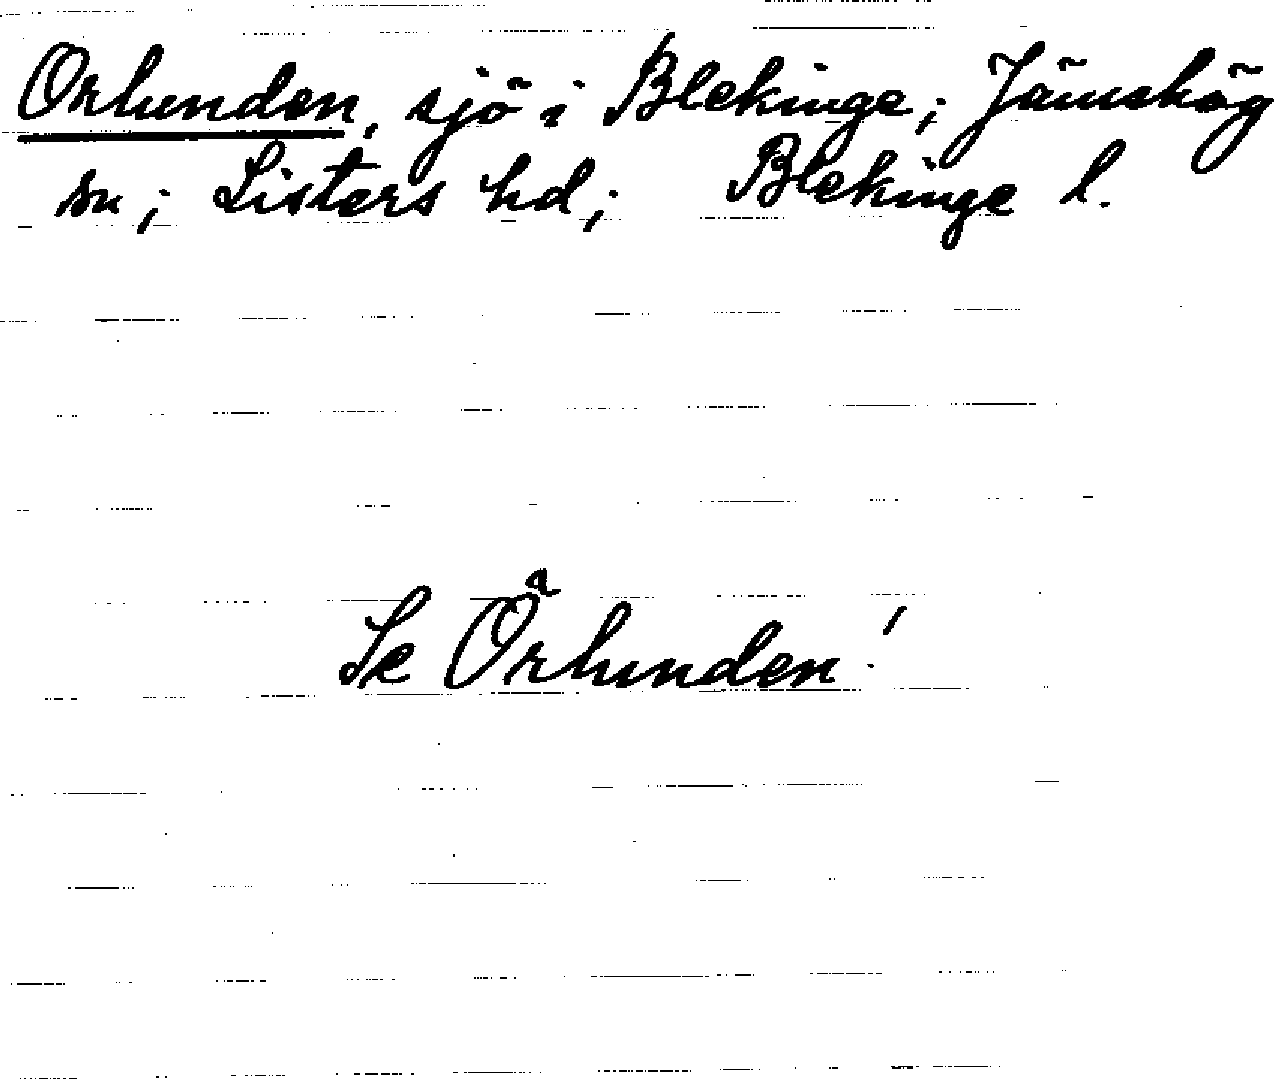 Orlunden, sjö i Blekinge; Jämshög
sn; Listers hd; Blekinge l.
Se Örlunden!